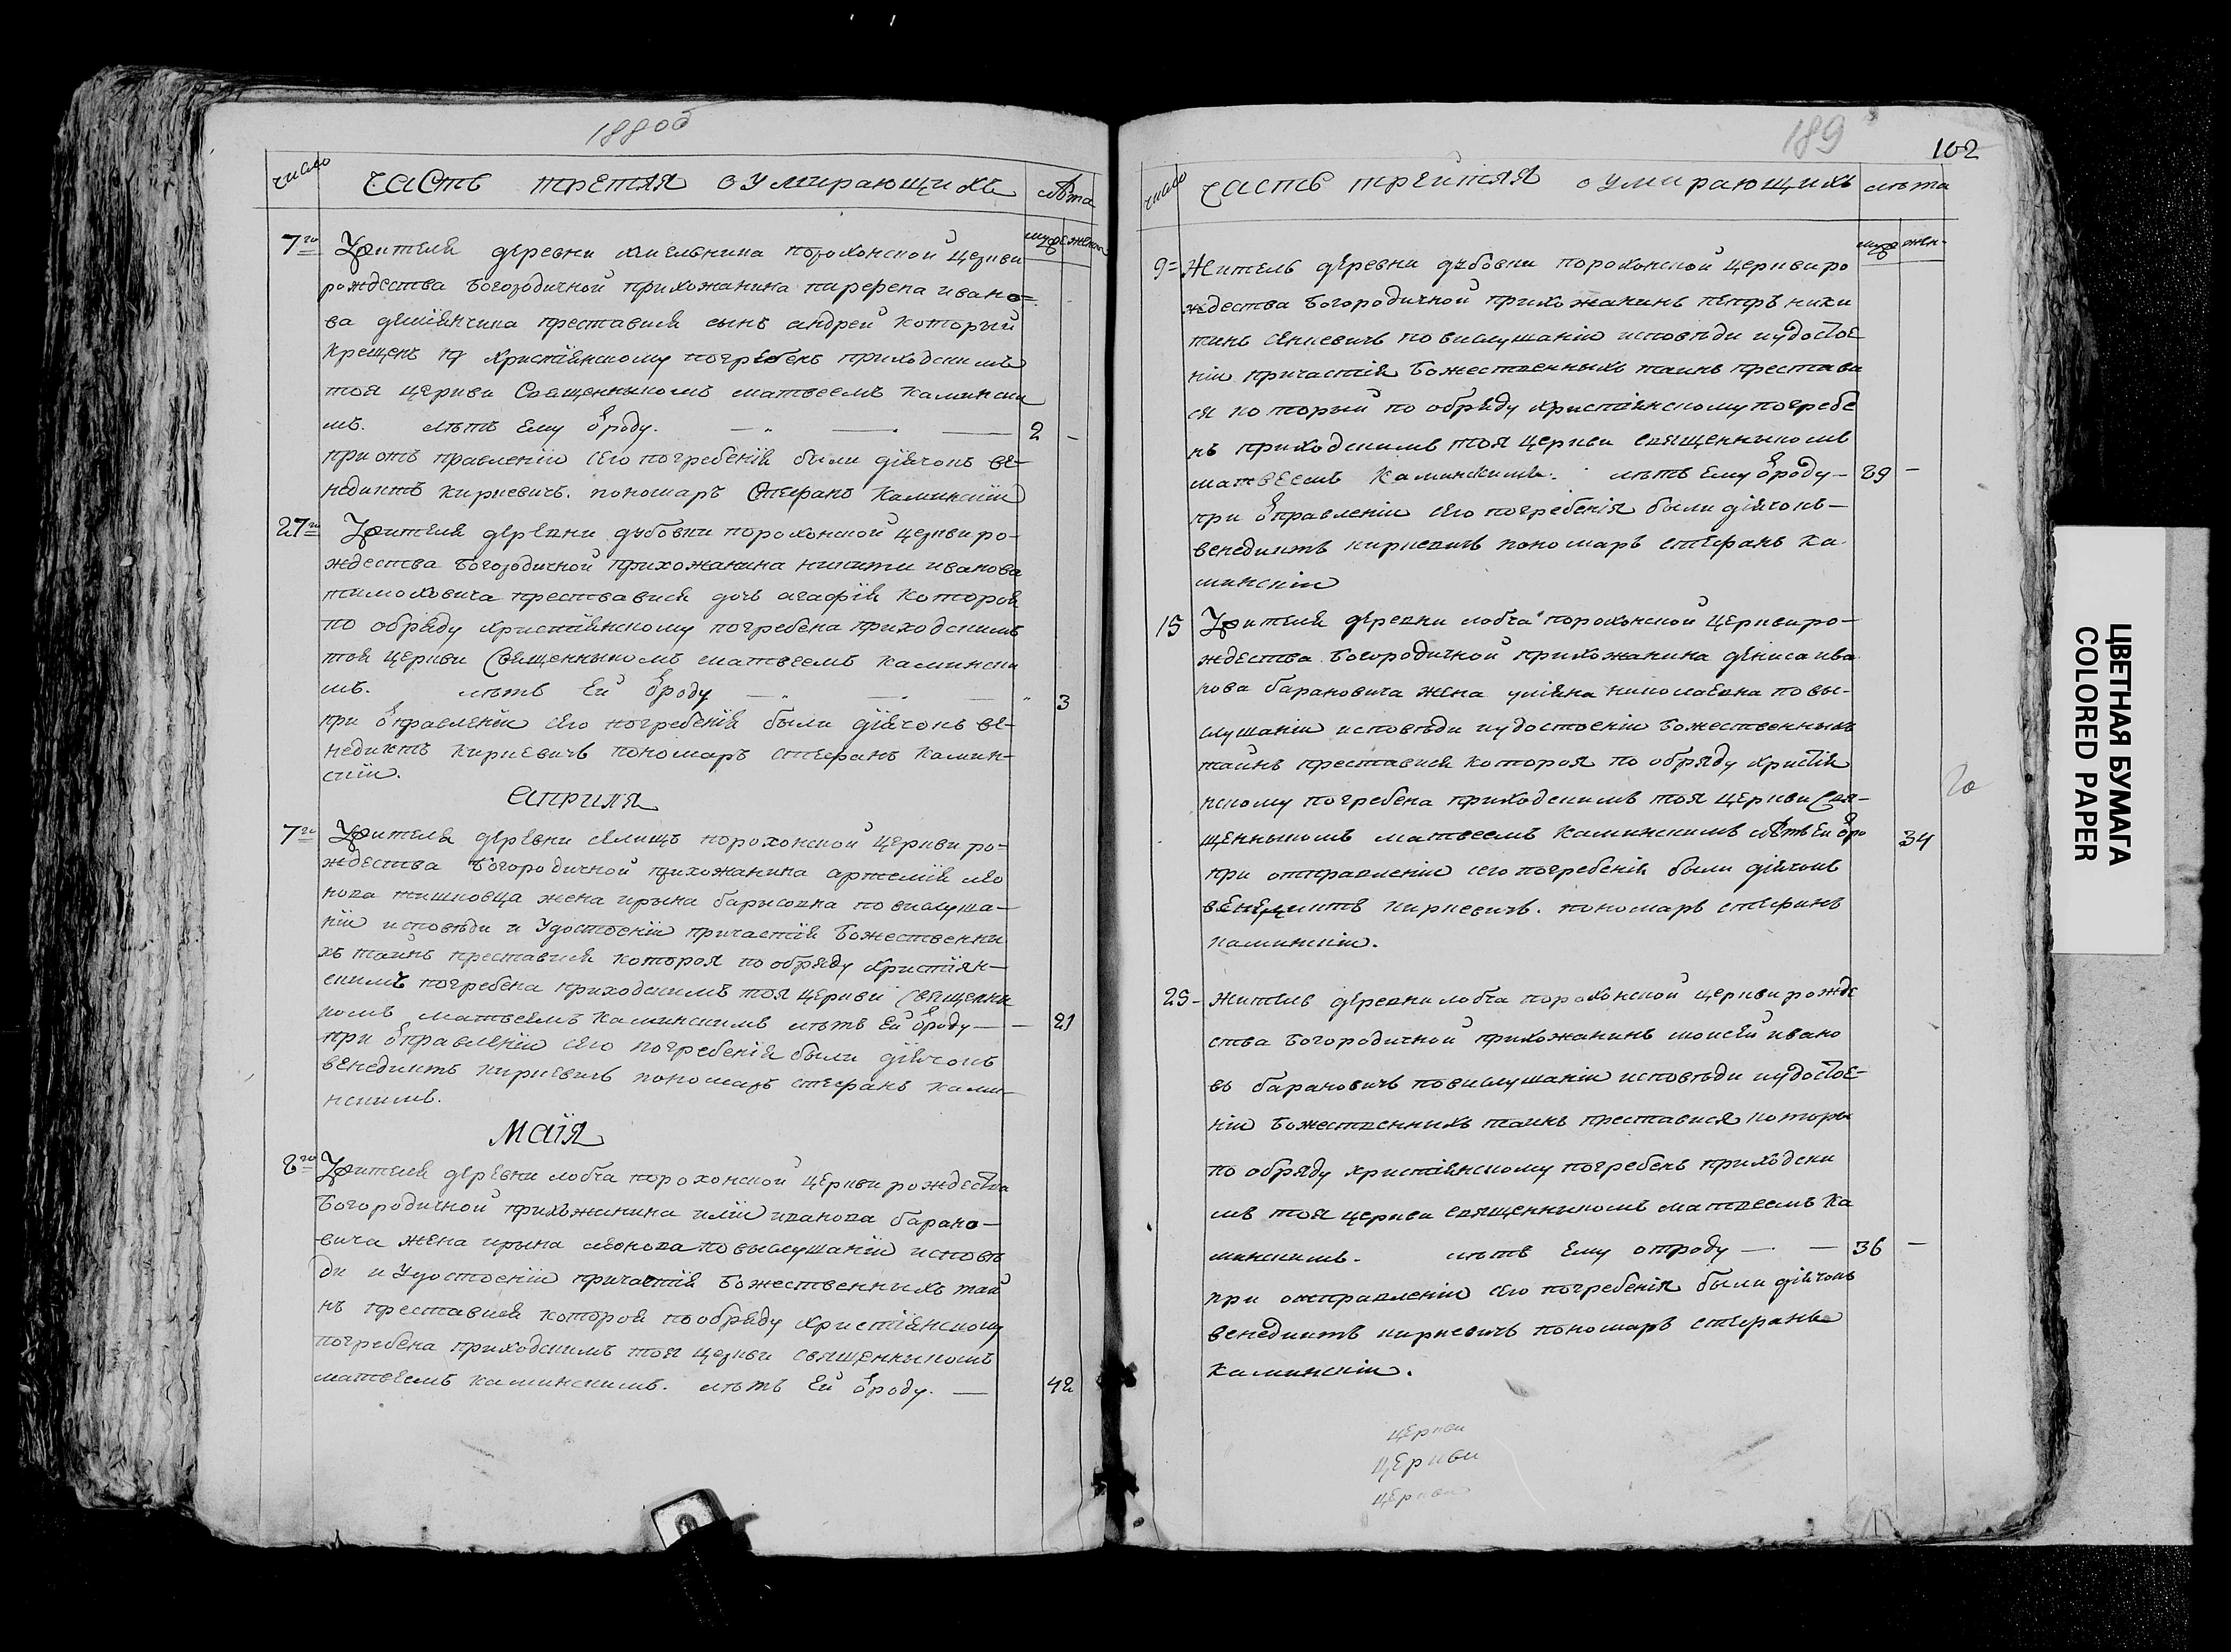 188об
число часть третяя о умирающихъ лѣта
муж женск
7го Жителя деревни хмельника порохонской церкви
рождества Богородичной прихожанина парфена ивано=
ва деміянчика преставися сынъ андрей который
крещенъ христіянскому погребенъ приходскимъ
тоя церкви Священникомъ матвеемъ камински
мъ. лѣтъ ему ѿроду. — — — 2 -
при отъ правленіи сего погребенія были діячокъ ве-
недиктъ киркевичъ. пономаръ Стефанъ Каминскій
27го Жителя деревни дубовки порохонской церкви ро-
ждества богородичной прихожанина никити иванова
тимоховича преставися дочь агафія котороя
по обряду христіянскому погребена приходскимъ
тоя церкви Священникомъ матвеемъ камински
мъ. лѣтъ ей ѿроду — — — 3
при ѿправленіи сего погребенія были діячокъ ве-
недиктъ киркевичъ пономаръ стефанъ камин-
скій.
Априля
7го Жителя деревни селищъ порохонской церкви ро-
ждества богородичной прихожанина артемія лео
нова тишковца жена ирына барисовна по вислуша-
ніи исповѣди и Удостоеніи причастія божественни
хъ таинъ преставися котороя по обряду христіян-
скимъ погребена приходскимъ тоя церкви Священни
комъ матвеемъ каминскимъ лѣтъ ей ѿроду — — 21
при ѿправленіи сего погребенія были діячокъ
венедиктъ киркевичъ пономаръ стефанъ ками-
нскимъ.
Маія
8го Жителя деревни лобча порохонской церкви рождества
богородичной прихожанина иліи иванова барано-
вича жена ирына леонова по выслушаніи исповѣ
ди и Удостоеніи причастія божественныхъ таи
нъ преставися котороя по обряду христіянскому
погребена приходскимъ тоя церкви священникомъ
матвеемъ каминскимъ. лѣтъ ей ѿроду. — 42
189
102
число часть трейтяя о умирающихъ лѣта
муж жен-
9= Житель деревни дубовки порохонской церкви ро
ждества богородичной прихожанинъ петръ ники
тинъ по вислушаніи исповѣди и удостое
ніи причастія божественныхъ таинъ престави
ся который по обряду христіянскому погребе
нъ приходскимъ тоя церкви священникомъ
матвеемъ Каминскимъ. лѣтъ ему ѿроду — 29 -
при ѿправленіи сего погребенія были діячокъ —
венедиктъ киркевичъ пономаръ стефанъ ка
минскіи
15 Жителя деревни лобча порохонской церкви ро-
ждества богородичной прихожанина дениса ива
нова барановича жена уліяна николаевна по вы-
слушаніи исповѣди и удостоеніи божественныхъ
таинъ преставися котороя по обряду христія
нскому погребена приходскимъ тоя церкви Свя-
щенникомъ матвеемъ каминскимъ лѣтъ ей ѿро 34
при отправленіи сего погребенія были діячокъ
венедиктъ киркевичъ. пономаръ стефанъ
каминскіи.
25- Житель деревни лобча порохонской церкви рожде
ства богородичной прихожанинъ моисей ивано
въ барановичъ по вислушаніи исповѣди и удостое-
ніи божественнихъ таинъ преставися которы
по обряду христіянскому погребенъ приходски
мъ тоя церкви священникомъ матвеемъ ка
минскимъ. лѣтъ ему отроду — — 36 —
при отправленіи сего погребенія были діячокъ
венедиктъ киркевичъ пономаръ стефанъ
каминскіи.
церкви
церкви
церкви
ЦВЕТНАЯ БУМАГА
COLORED PAPER